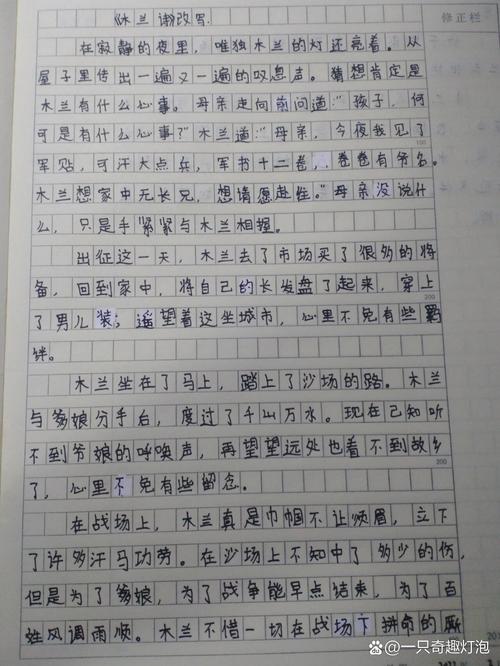 《木兰诗》改写.
修正栏
在寂静的夜里，唯独木兰的灯还亮着。从
屋子里传出一遍又一遍的叹息声。猜想肯定是
木兰有什么心事。母亲走向前问道："孩子，何
可是有什么心事？"木兰道："母亲，今夜我见了
100
军贴，可汗大点兵，军书十二卷，卷卷有爷名。
木兰想家中无长兄，想请愿赴往。"母亲没说什
么，只是手紧紧与木兰相握。
出征这一天，木兰去了市场买了很多的将
备，回到家中，将自己的长发盘了起来，穿上
200
了男儿装；遥望着这坐城市，心里不免有些羁
绊。
木兰坐在了马上，踏上了沙场的路。木兰
与爹娘分手后，度过了千山万水。现在已知听
不到爷娘的呼唤声，再望望远处也看不到故乡
300
了，心里不免有些留念。
在战场上，木兰真是巾帼不让须眉，立下
了许多汗马功劳。在沙场上不知中了多少的伤，
但是为了爹娘，为了战争能早点结束，为了百
姓风调雨顺。木兰不借一切在战场下拼命的厮
一只奇趣灯泡